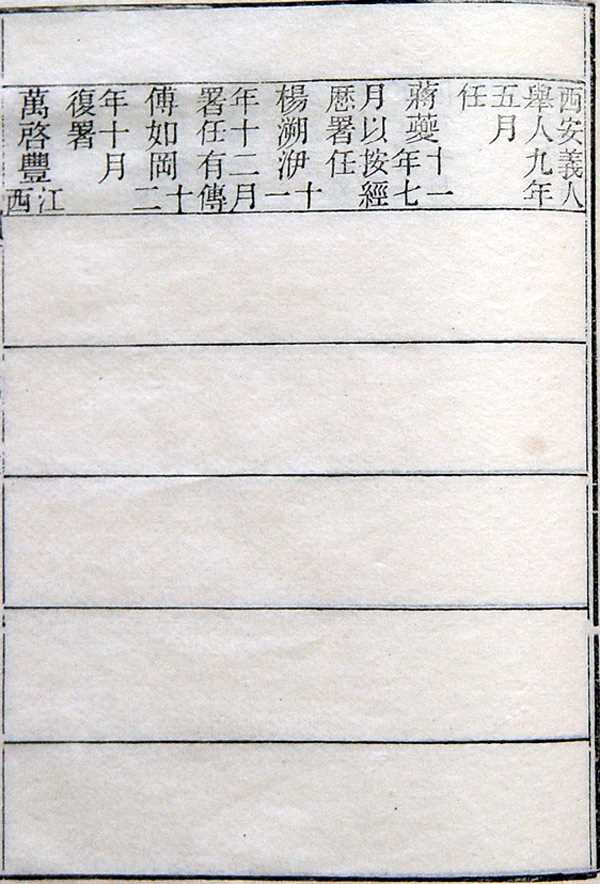 西安義人
舉人九年
五月
任
蔣夔十一年七
月以按經
厯署任
楊溯洢十一
年十二月
署任有傳
傅如岡十二
年十月
復署
萬啓豐江西